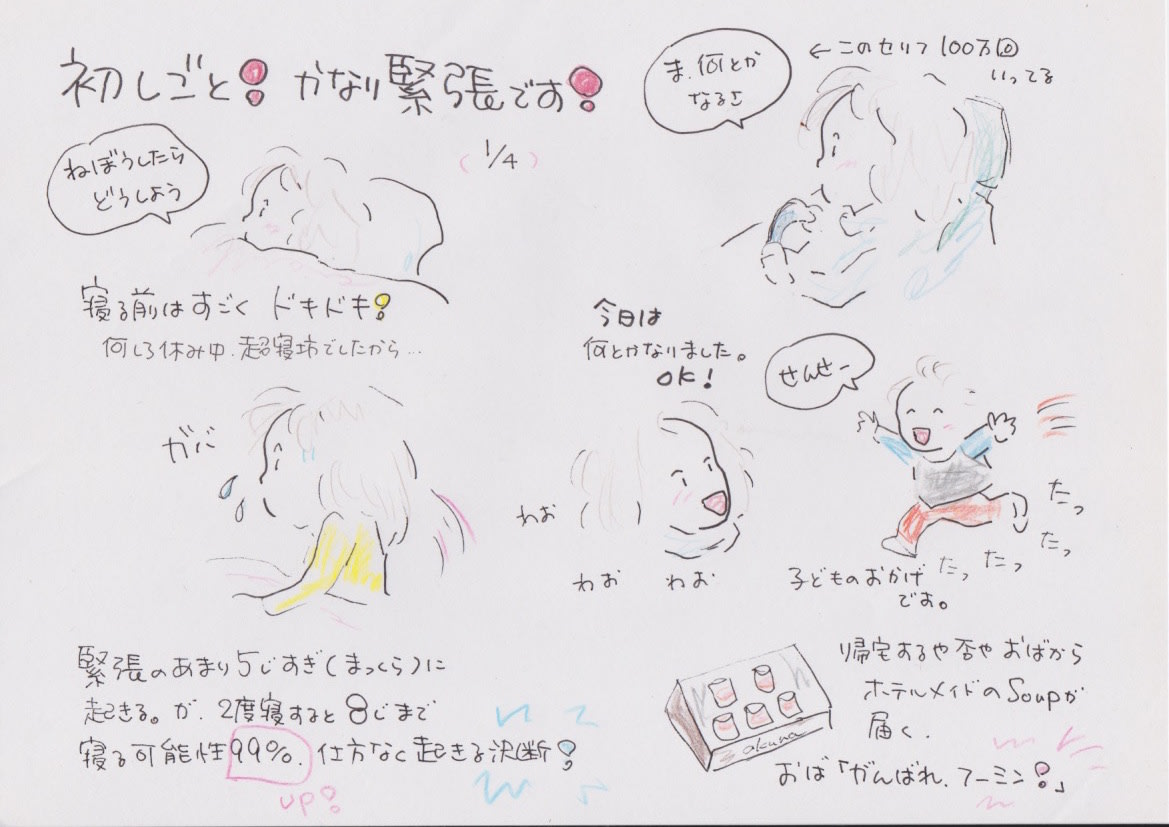 初しごと! かなり緊張です!
(1/4)
ねぼうしたら
どうしよう
寝る前はすごく ドキドキ!
何しろ休み中、超寝坊でしたから…
ガバ
緊張のあまり5じすぎ(まっくら)に
起きる。が、2度寝すると8じまで
寝る可能性99%、仕方なく起きる決断!
up!
ま、何とか
なるさ
←このセリフ100万回
いってる
今日は
何とかなりました。
OK!
わお
わお わお
せんせー
たっ
たっ
たっ
たっ
子どものおかげ
です。
帰宅するや否やおばから
ホテルメイドのSoupが
届く。
okuna
おば「がんばれ、フーミン!」